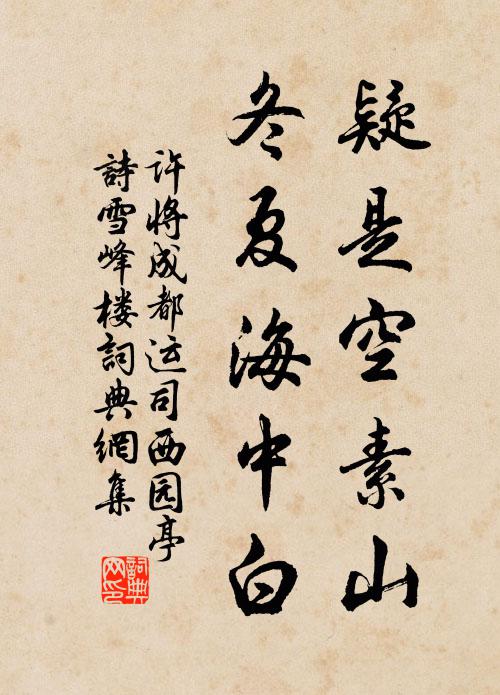 疑是空素山
冬夏海中白
许将成都运司西园亭
詩雪峰楼詞典網集
詞典网印